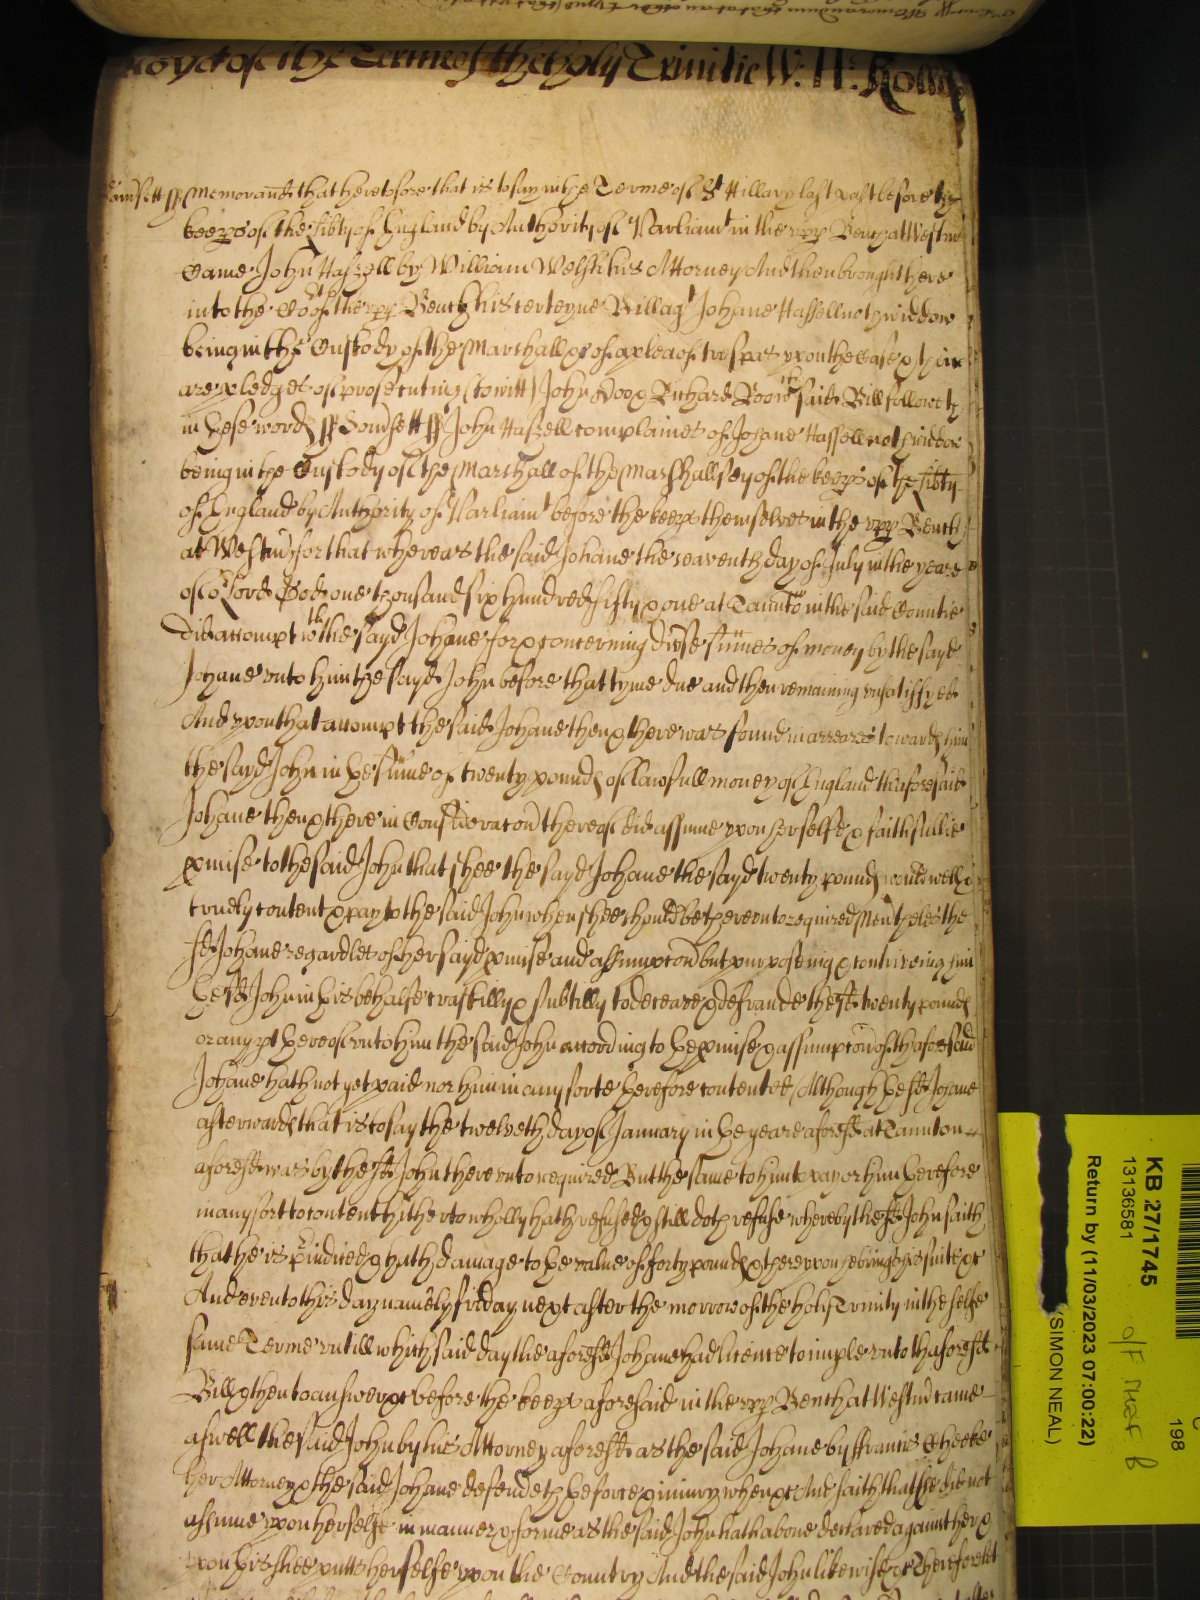 of the Terme of the holy Trinitie W: H: Rolle
Somsett ss Memorand that heretofore that is to say in the Terme of St Hillary last past before the
keeps of the libty of England by Authority of Parliamt in the upp Bench at Westm
Came John Haszell by William Welsh his Attorney And then brought here
into the Cort of the upp Bench his certeyne Bill agt Johane Hassell widdow
being in the Custody of the Marshall &c of a plea of trespas upon the Case & there
are pledges of prosecuting (to witt) John Doo & Richard Roo wch said Bill followeth
in these words ss Somsett ss John Haszell complaines of Johane Hassell widdow
being in the Custody of the Marshall of the Marshallsey of the keeps of the libty
of England by Authority of Parliamt before the keeps themselves in the upp Bench
at Westm for that whereas the said Johane the seaventh day of July in the yeare
of or Lord God one thousand six hundred fifty & one at Taunton in the said Countie
did accompt wth the sayd Johane for & concerning divse sumes of money by the sayd
Johane unto him the sayd John before that tyme due and then remaining unsatisfyed
And upon that accompt the said Johane then & there was found in arreares towards him
the sayd John in the sume of twenty pounds of lawfull money of England the aforesaid
Johane then & there in Consideracon thereof did assume upon herselfe & faithfullie
pmise to the said John that shee the sayd Johane the sayd twenty pounds would well &
truely content & pay to the said John when shee should be thereunto required Nevtheles the
sd Johane regardles of her sayd pmise and assumpcon but purposeing & contriveing him
the sd John in this behalfe craftilly & subtilly to deceave & defraude the sd twenty pounds
or any pt thereof unto him the said John according to the pmise & assumpcon of the aforesaid
Johane hath not yet paid nor him in any sorte therefore contented Although the sd Johane
afterwards that is to say the twelveth day of January in the yeare aforesd at Taunton
aforesd was by the sd John thereunto required But the same to him to pay or him therefore
in any sort to content hitherto wholly hath refused & still doth refuse whereby the sd John saith
that he is piudiced & hath damage to the value of forty pounds & thereupon he brings his suite &c
And even to this day namely friday next after the morrow of the holy Trinity in the selfe
same Terme untill which said day the aforesd Johane had licence to imple unto the aforesd
Bill & then to answer &c before the keeps aforesaid in the upp Bench at Westm came
aswell the said John by his Attorney aforesd as the said Johane by ffrancis Cheeke
her Attorney & the said Johane defendeth the force & iniury when &c And saith that shee did not
assume upon herselfe in manner & forme as the said John hath above declared against her &
upon this shee putts herselfe upon the Country And the said John likewise &c Therefore let
KB 27/1745
13136581
Return by (11/03/2023 07:00:22)
(SIMON NEAL)
198